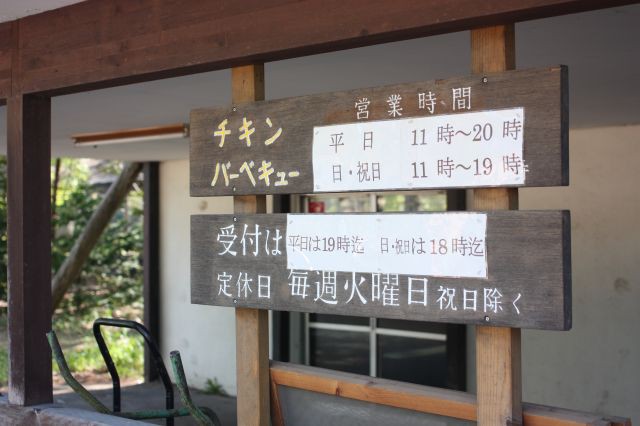 営業時間
チキン
バーベキュー
平日 11時〜20時
日・祝日 11時〜19時
受付は 平日は19時迄 日・祝日は18時迄
定休日 毎週火曜日 祝日除く